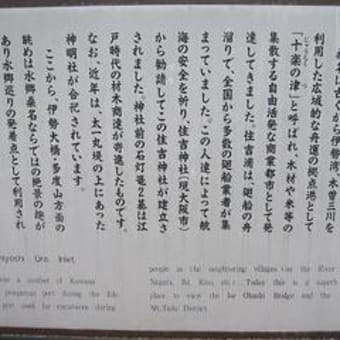 桑名は古くから伊勢湾、木曽三川を
利用した広域的な舟運の拠点港として
「十楽の津」と呼ばれ、木材や米等の
集散する自由活発な商業都市として発
達してきました。住吉浦は、廻船の舟
溜りで、全国から多数の廻船業者が集
まっていました。この人達によって航
海の安全を祈り、住吉神社(現大阪市)
から勧請してこの住吉神社が建立さ
れました。神社前の石灯篭2基は江
戸時代の材木商達が寄進したものです。
なお、近年は、太一丸堤の上にあった
神明社が合祀されています。
ここから、伊勢大橋・多度山方面の
眺めは水郷桑名ならではの絶景の趣が
あり水郷巡りの発着点として利用され
Ura Inlet
of Kuwana
port during the Edo
port used for excursions during
people in the neighboring villages (on the River
Nagara, Ibi, Kiso, etc). Today this is a superb
place to view the Ise Ohashi Bridge and the
Mt.Tado District.